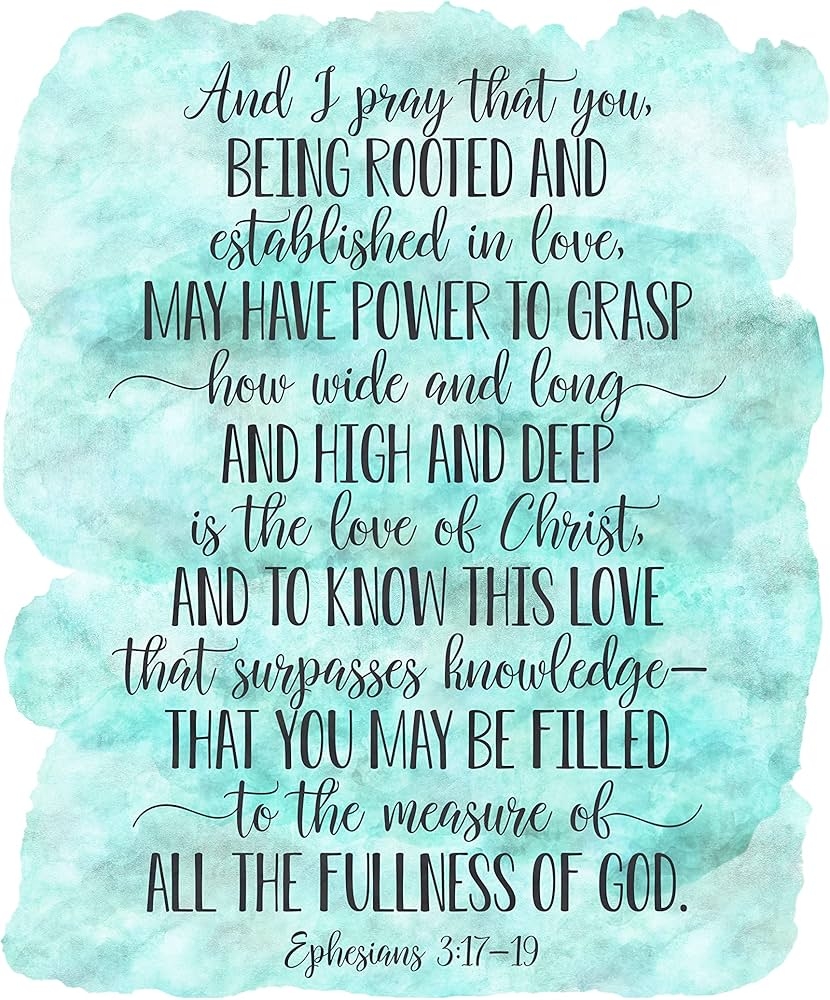 And I pray that you,
BEING ROOTED AND
established in love,
MAY HAVE POWER TO GRASP
how wide and long
AND HIGH AND DEEP
is the love of Christ,
AND TO KNOW THIS LOVE
that surpasses knowledge—
THAT YOU MAY BE FILLED
to the measure of
ALL THE FULLNESS OF GOD.
Ephesians 3:17–19